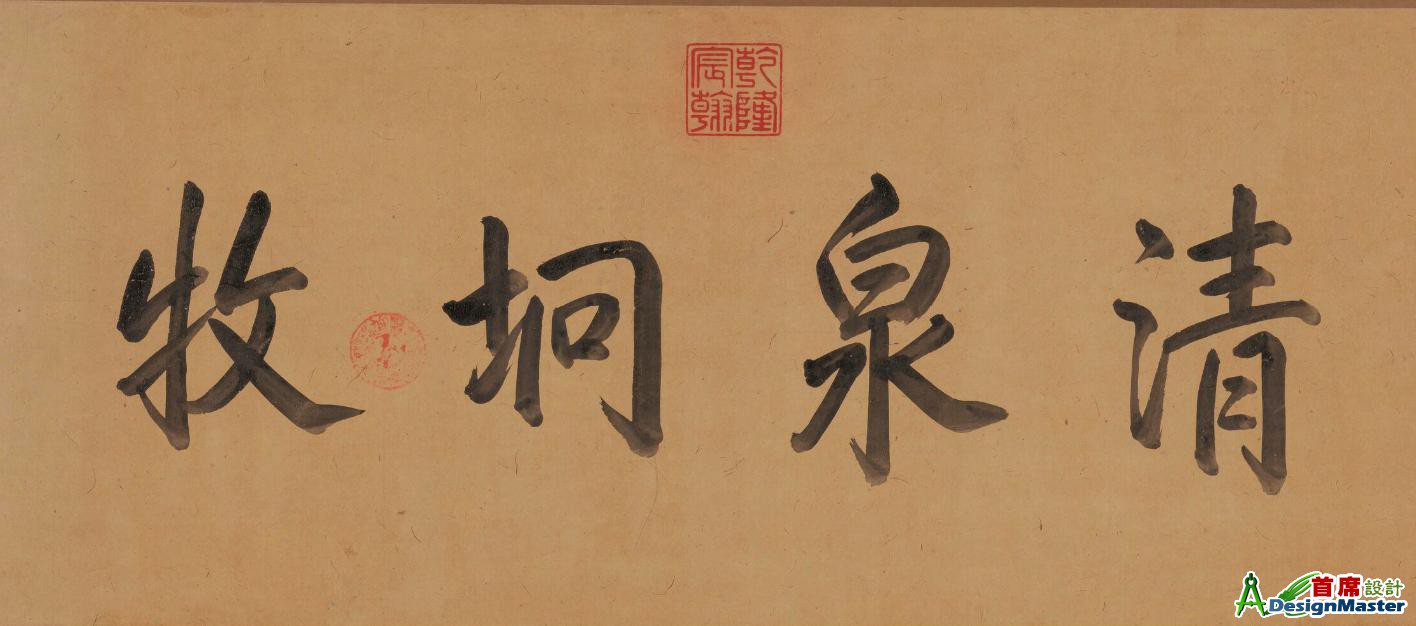 乾隆宸翰
清泉坰牧
首席設計
DesignMaster